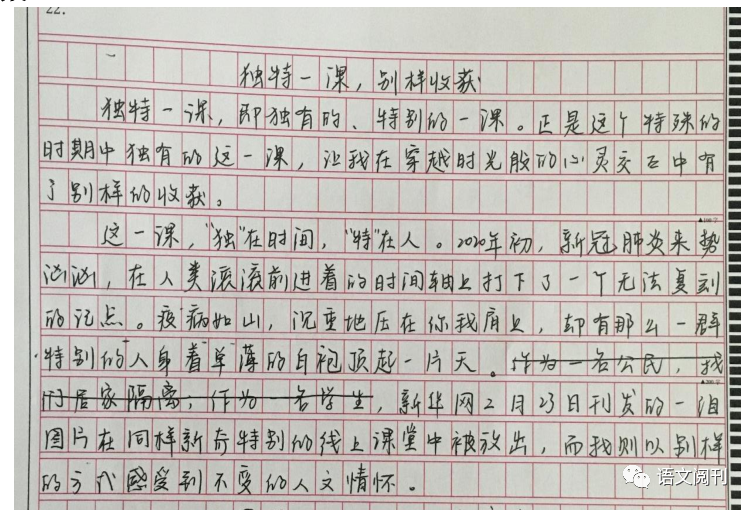 22.
独特一课，别样收获
独特一课，即独有的、特别的一课。正是这个特殊的
时期中独有的这一课，让我在穿越时光般的心灵交互中有
了别样的收获。
这一课，“独”在时间，“特”在人。2020年初，新冠肺炎来势
汹汹，在人类滚滚前进着的时间轴上打下了一个无法复刻
的记点。疫病如山，沉重地压在你我肩上，却有那么一群
特别的人身着单薄的白袍顶起一片天。作为一名公民，我
们居家隔离；作为一名学生，新华网2月23日刊发的一组
图片在同样新奇特别的线上课堂中被放出，而我则以别样
的方式感受到不变的人文情怀。
语文阅刊